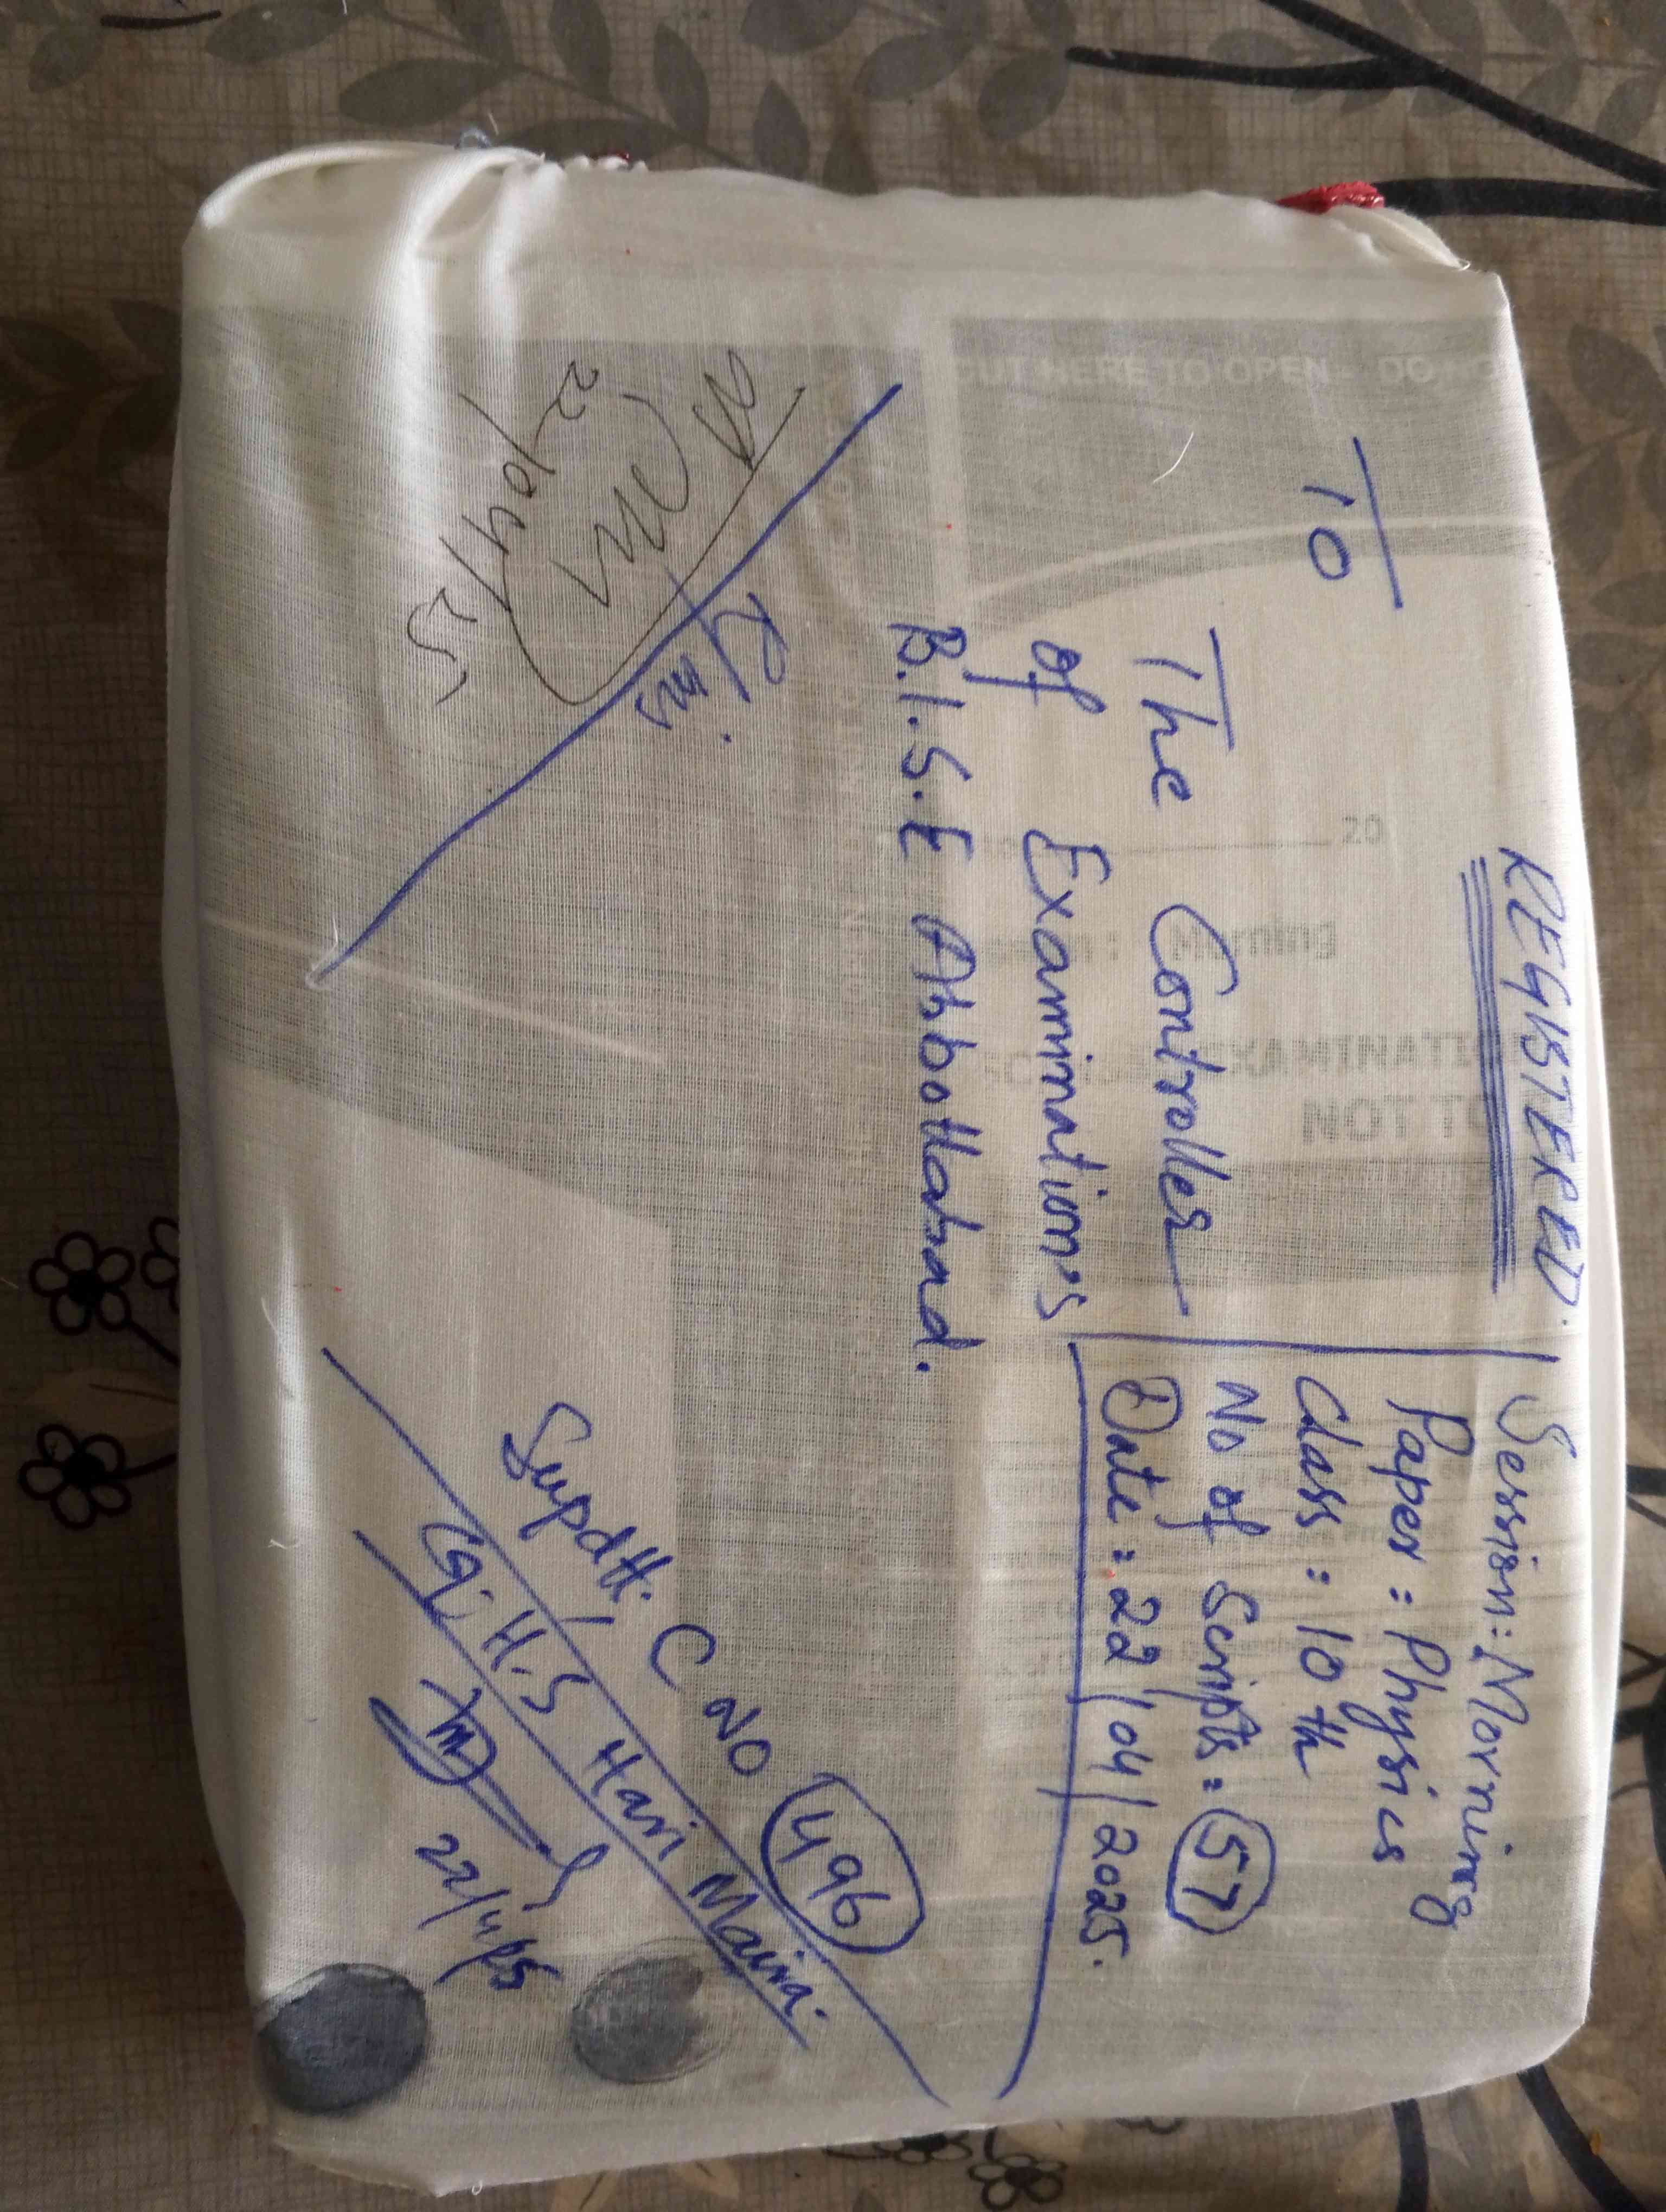 REGISTERED.
Session: Morning
Paper = Physics
Class = 10 th
No of Scripts = 57
Date = 22/04/2025.
TO
The Controller
of Examination's
B.I.S.E Abbottabad.
R/ms.
22/04/25
Supdtt. C NO 496
G.H.S Hari Maira.
22/4/25
CUT HERE TO OPEN - DO NO
20
Morning
EXAMINATI
NOT TO